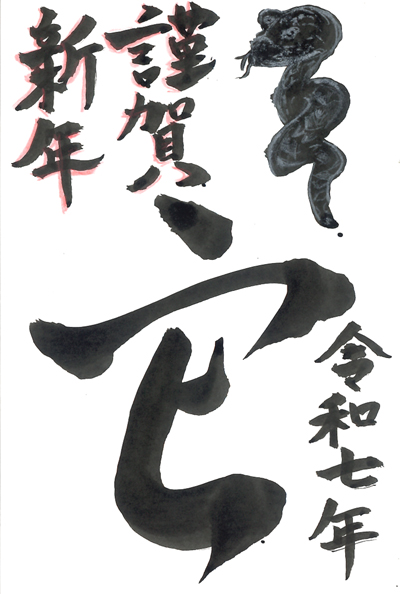 謹賀
新年
它
令和七年